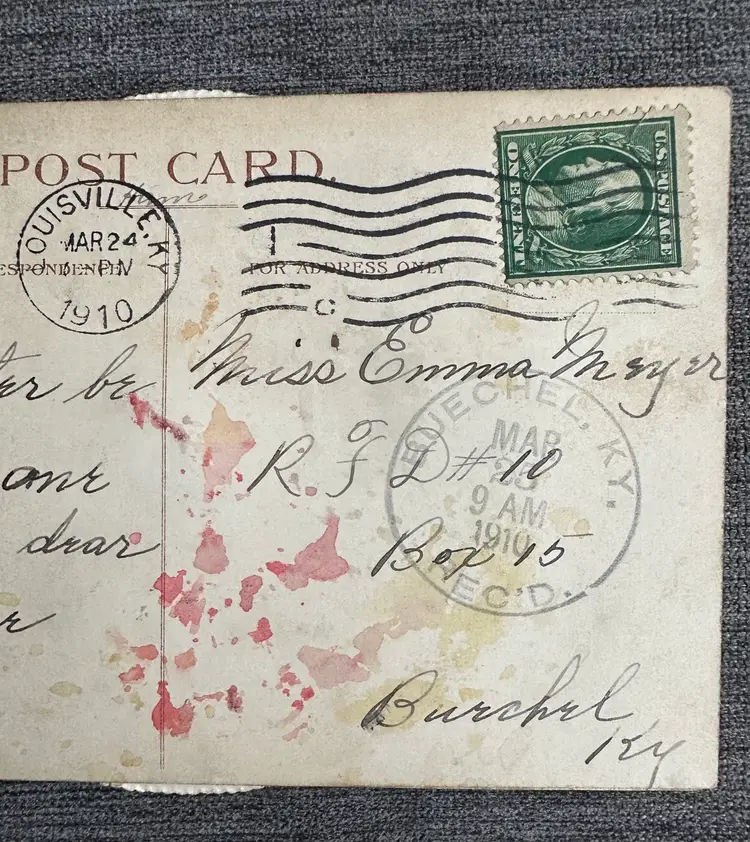 POST CARD.
LOUISVILLE, KY
MAR 24
PM
1910
ESPONDENCE
FOR ADDRESS ONLY
C
U.S. POSTAGE
ONE CENT
ter be
one
dear
r
Miss Emma Meyer
R F D # 10
Box 15
Buechel
Ky
BUECHEL, KY.
MAR
25
9 AM
1910
REC'D.